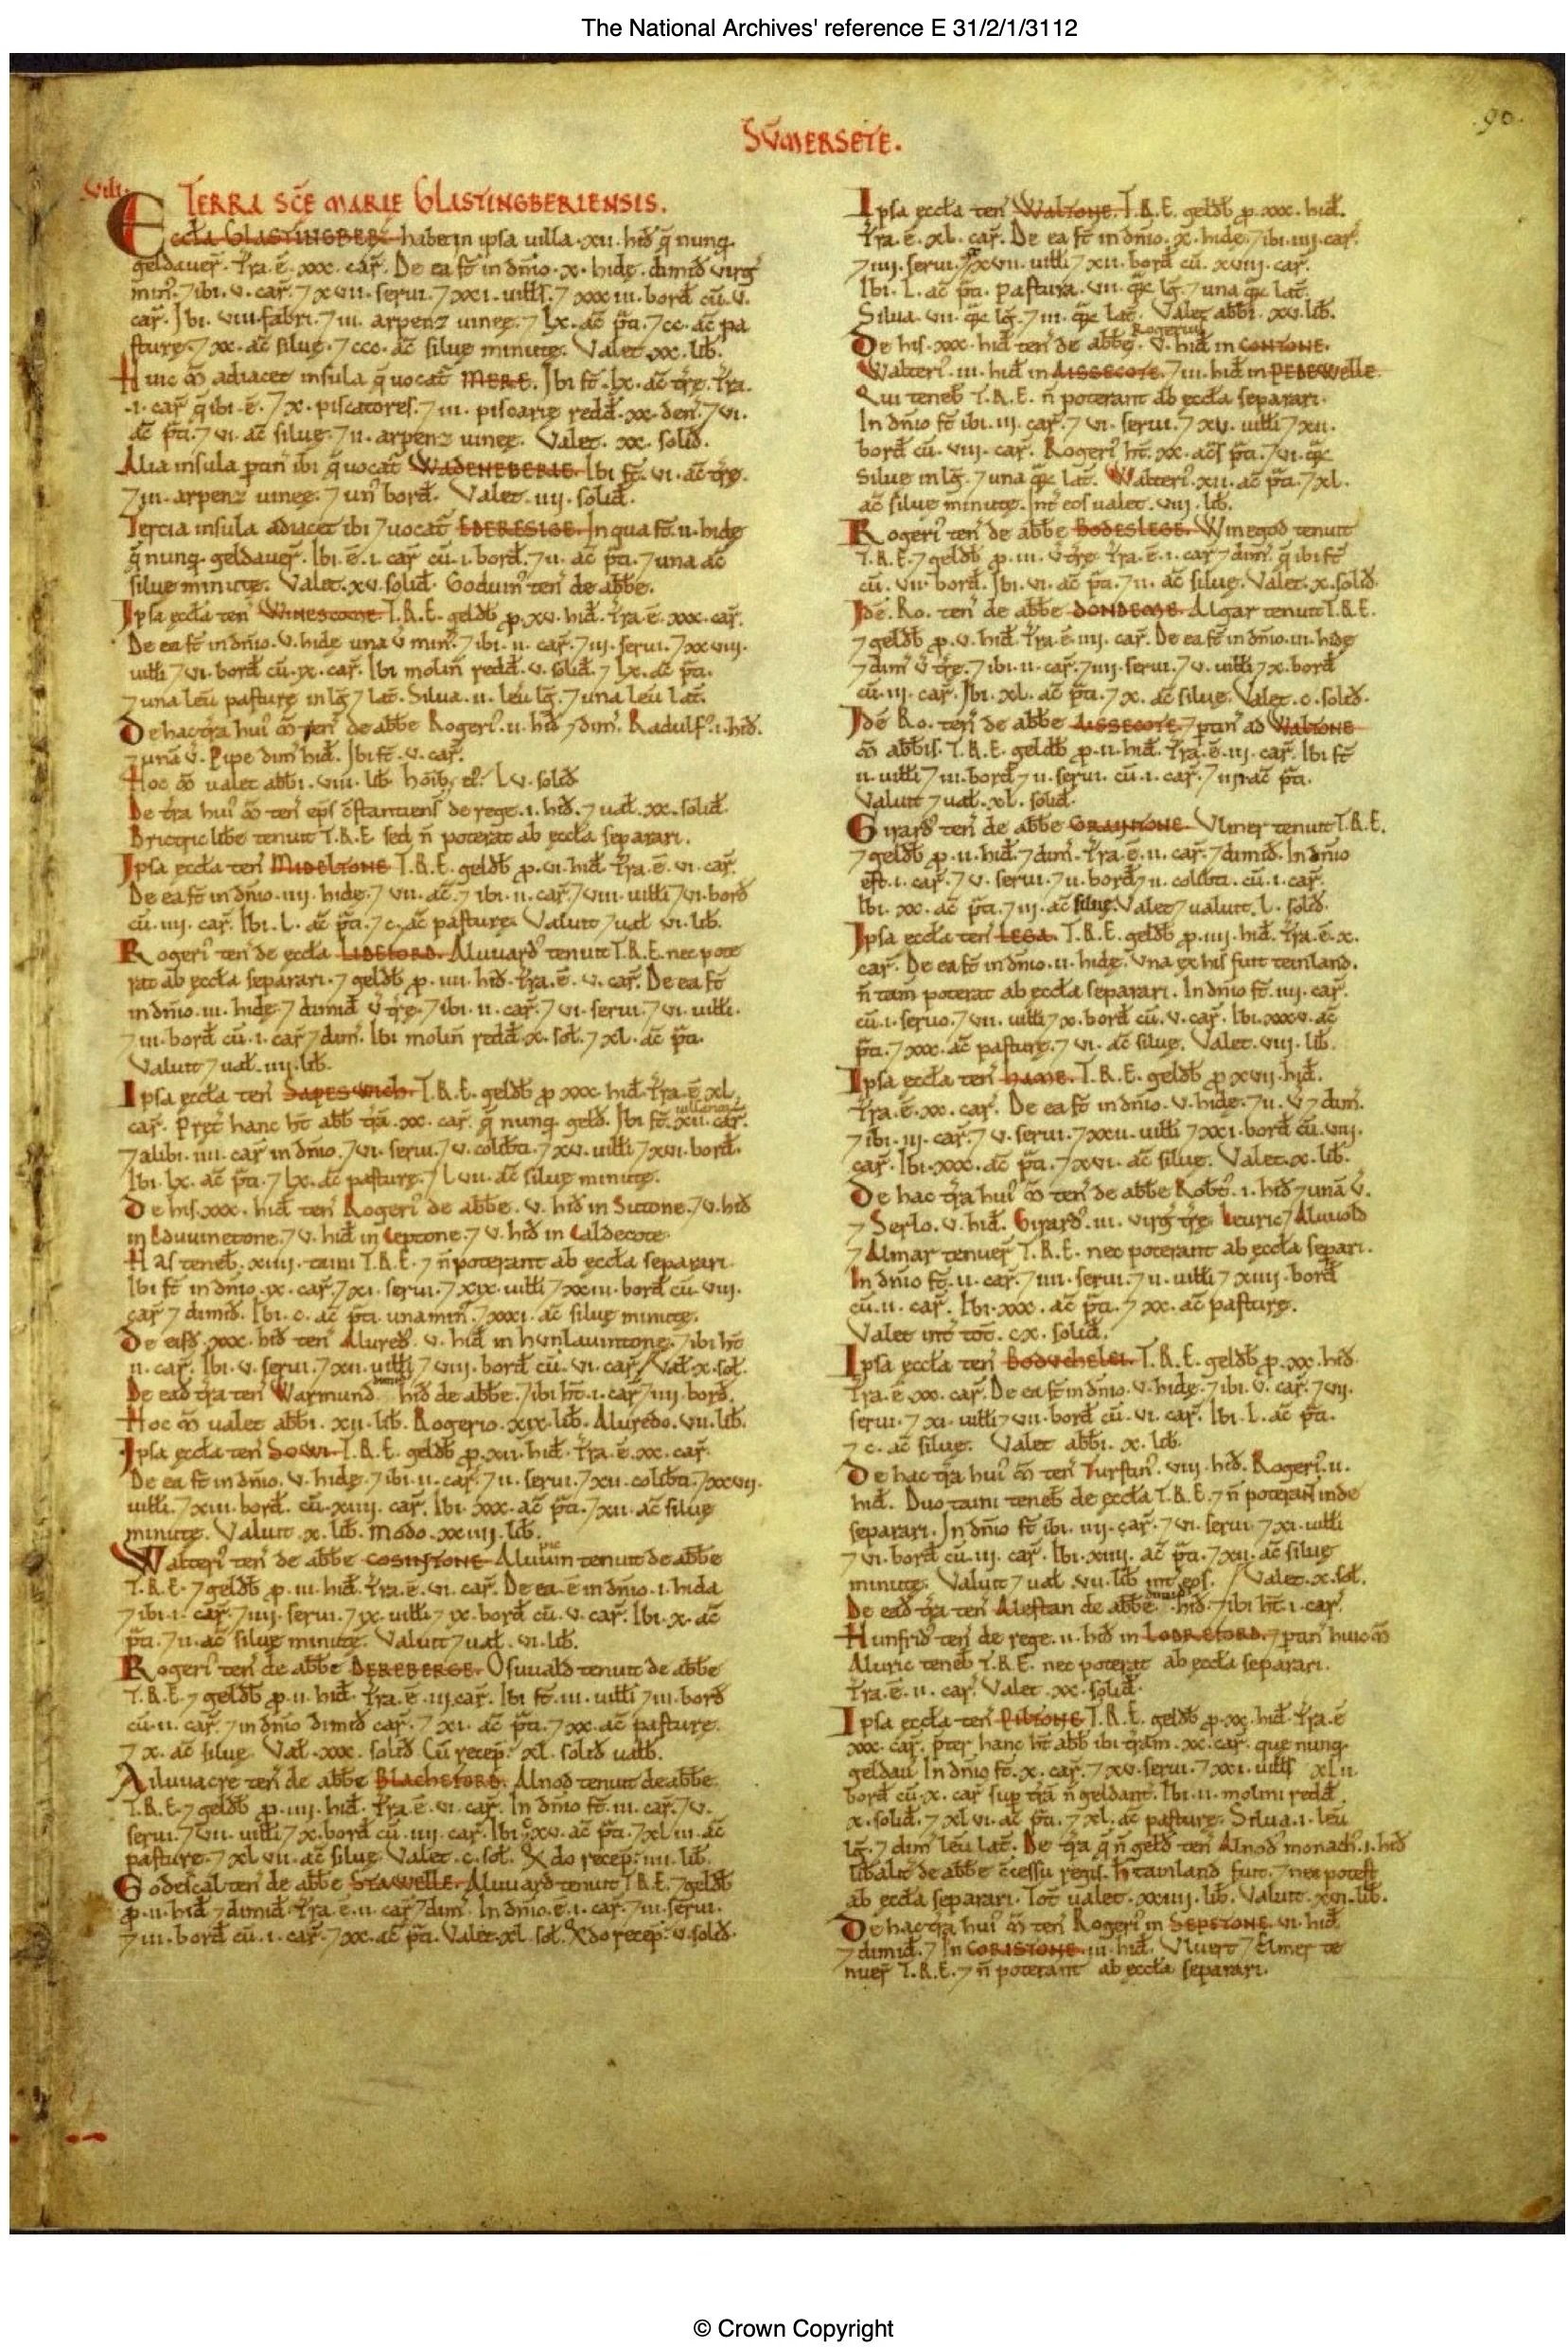 The National Archives' reference E 31/2/1/3112
.90.
SUMERSETE.
VIII. TERRA SCE MARIE GLASTINGBERIENSIS.
Eccła GLASTINGBERI habet in ipsa uilla .xii. hid q̄ nunq̄
geldauer̄. Tr̄a .ē .xxx. car̄. De ea st̄ in dn̄io .x. hidę. dimid uirg̃
min'. 7 ibi .v. car̄. 7 xvii. serui. 7 xxi. uiłłs. 7 xxxiii. bord cū .v.
car̄. Ibi .viii. fabri. 7 iii. arpenz uineę. 7 lx. ac̄ p̄ti. 7 cc. ac̄ pa
sturę. 7 xx. ac̄ siluę. 7 ccc. ac̄ siluę minutę. Valet .xx. lib̄.
Huic m̄ adiacet insula q̄ uocat̄ MERE. Ibi st̄ .lx. ac̄ tr̄ę. Tr̄a
.i. car̄ q̄ ibi .ē. 7 x. piscatores. 7 iii. piscarię redd̄ .xx. den̄. 7 vi.
ac̄ p̄ti. 7 vi. ac̄ siluę. 7 ii. arpenz uineę. Valet. xx. solid̄.
Alia insula ptin' ibi q̄ uocat̄ WADENEBERIE. Ibi st̄ .vi. ac̄ tr̄ę.
7 iii. arpenz uineę. 7 un' bord̄. Valet .iiii. solid̄.
Tercia insula adiacet ibi 7 uocat̄ EDERESIGE. In qua st̄ .ii. hidę
q̄ nunq̄ geldauer̄. Ibi .ē .i. car̄ cū .i. bord̄. 7 ii. ac̄ p̄ti. 7 una ac̄
siluę minutę. Valet .xv. solid̄. Goduin' ten' de abbe.
Ipsa eccła ten' WINESCOME. T.R.E. geldb̄ p .xv. hid̄. Tr̄a .ē .xxx. car̄.
De ea st̄ in dn̄io .v. hidę una v̄ min'. 7 ibi .ii. car̄. 7 iii. serui. 7 xxviii.
uiłłi 7 vi. bord̄ cū .ix. car̄. Ibi molin̄ redd̄ .v. solid̄. 7 lx. ac̄ p̄ti.
7 una leu̅ pasturę in lg̃ 7 lat̄. Silua .ii. leu̅ lg̃. 7 una leu̅ lat̄.
De hac tr̄a hui' m̄ ten' de abbe Roger'. ii. hid̄ 7 dim'. Radulf'. i. hid̄.
7 unā v̄. Pipe dim̄ hid̄. Ibi st̄ .v. car̄.
Hoc m̄ ualet abb̄i .viii. lib̄. hōib; ei': Lv. solid̄
De tr̄a hui' m̄ ten' ep̄s c̄stantiens' de rege .i. hid̄. 7 uał .xx. solid̄.
Brictric libe tenuit T.R.E. sed n̄ poterat ab eccła separari.
Ipsa eccła ten' MIDELTONE. T.R.E. geldb̄ p .vi. hid̄. Tr̄a .ē .vi. car̄.
De ea st̄ in dn̄io .iiii. hidę. 7 vii. ac̄. 7 ibi .ii. car̄. 7 viii. uiłłi 7 vi. bord̄
cū .iiii. car̄. Ibi .L. ac̄ p̄ti. 7 c. ac̄ pasturę. Valuit 7 uał vi. lib̄.
Rogeri' ten' de eccła LIDEFORD. Aluuard' tenuit T.R.E. nec pote
rat ab eccła separari. 7 geldb̄ p .iiii. hid̄. Tr̄a .ē .v. car̄. De ea st̄
in dn̄io .iii. hidę. 7 dimid̄ v̄ tr̄ę. 7 ibi .ii. car̄. 7 vi. serui. 7 vi. uiłłi.
7 iii. bord̄ cū .i. car̄ 7 dim̄. Ibi molin̄ redd̄ .x. soł. 7 xl. ac̄ p̄ti.
Valuit 7 uał .iiii. lib̄.
Ipsa eccła ten' SAPESWICH. T.R.E. geldb̄ p xxx. hid̄. Tr̄a .ē .xl.
car̄. Pręt' hanc ht̄ abb̄ tr̄ā .xx. car̄. q̄ nunq̄ geld̄. Ibi st̄ .xii. car̄. uillanorū
7 alibi .iiii. car̄ in dn̄io. 7 vi. serui. 7 v. colib̄ti. 7 xv. uiłłi 7 xvi. bord̄.
Ibi lx. ac̄ p̄ti. 7 lx. ac̄ pasturę. 7 Lvii. ac̄ siluę minutę.
De his .xxx. hid̄ ten' Rogeri' de abbe .v. hid̄ in Suttone. 7 v. hid̄
in Eduuinetone. 7 v. hid̄ in Ceptone. 7 v. hid̄ in Caldecote.
Has teneb̄ .xiiii. taini T.R.E. 7 n̄ poterant ab eccła separari.
Ibi st̄ in dn̄io .ix. car̄. 7 xi. serui. 7 xix. uiłłi 7 xxiii. bord̄ cū .viii.
car̄ 7 dimid̄. Ibi .c. ac̄ p̄ti una min'. 7 xxxi. ac̄ siluę minutę.
De eisd̄ .xxx. hid̄ ten' Alured'. v. hid̄ in hunlauintone. 7 ibi ht̄
ii. car̄. Ibi .v. serui. 7 xii. uiłłi 7 viii. bord̄ cū .vi. car̄. Vał .x. soł.
De ead̄ tr̄a ten' Warmund' hid̄ de abbe. 7 ibi ht̄ .i. car̄ 7 iiii. bord̄.
Hoc m̄ ualet abb̄i .xii. lib̄. Rogerio .xix. lib̄. Aluredo .vii. lib̄.
Ipsa eccła ten' SOWI. T.R.E. geldb̄ p .xii. hid̄. Tr̄a .ē .xx. car̄.
De ea st̄ in dn̄io .v. hidę. 7 ibi .ii. car̄. 7 ii. serui. 7 xii. colib̄ti. 7 xxvii.
uiłłi. 7 xiii. bord̄. cū .xiiii. car̄. Ibi .xxx. ac̄ p̄ti. 7 xii. ac̄ siluę
minutę. Valuit .x. lib̄. Modo .xxiiii. lib̄.
Walteri' ten' de abbe COSINTONE. Aluuin pic tenuit de abbe
T.R.E. 7 geldb̄ p .iii. hid̄. Tr̄a .ē .vi. car̄. De ea .ē in dn̄io .i. hida
7 ibi .i. car̄. 7 iiii. serui. 7 ix. uiłłi 7 ix. bord̄ cū .v. car̄. Ibi .x. ac̄
p̄ti. 7 ii. ac̄ siluę minutę. Valuit 7 uał .vi. lib̄.
Rogeri' ten' de abbe DEREBERGE. Osuuald tenuit de abbe
T.R.E. 7 geldb̄ p .ii. hid̄. Tr̄a .ē .iii. car̄. Ibi st̄ .iii. uiłłi 7 iii. bord̄
cū .ii. car̄. 7 in dn̄io dimid̄ car̄. 7 xi. ac̄ p̄ti. 7 xx. ac̄ pasturę.
7 x. ac̄ siluę. Vał .xxx. solid̄. Cū recep̄: xl. solid̄ ualb̄.
Ailuuacre ten' de abbe BLACHEFORD. Alnod tenuit de abbe
T.R.E. 7 geldb̄ p .iiii. hid̄. Tr̄a .ē .vi. car̄. In dn̄io st̄ .iii. car̄. 7 v.
serui. 7 vii. uiłłi 7 x. bord̄ cū .iiii. car̄. Ibi .xv. ac̄ p̄ti. 7 xliii. ac̄
pasturę. 7 xlvii. ac̄ siluę. Valet .c. soł. Q̄do recep̄: iiii. lib̄.
Godescal ten' de abbe STAWELLE. Aluuard tenuit T.R.E. 7 geldb̄
p .ii. hid̄ 7 dimid̄. Tr̄a .ē .ii. car̄ 7 dim̄. In dn̄io .ē .i. car̄. 7 iii. serui.
7 iii. bord̄ cū .i. car̄. 7 xx. ac̄ p̄ti. Valet .xl. soł. Q̄do recep̄: v. solid̄.
Ipsa eccła ten' WALTONE. T.R.E. geldb̄ p .xxx. hid̄.
Tr̄a .ē .xl. car̄. De ea st̄ in dn̄io .x. hidę. 7 ibi .iiii. car̄.
7 iiii. serui. 7 xvii. uiłłi 7 xii. bord̄ cū .xviii. car̄.
Ibi .L. ac̄ p̄ti. Pastura .vii. q̄z lg̃. 7 una q̄z lat̄.
Silua .vii. q̄z lg̃. 7 iii. q̄z lat̄. Valet abb̄i .xv. lib̄.
De his .xxx. hid̄ ten' de abbe Rogerius .v. hid̄ in CONTONE.
Walteri'. iii. hid̄ in AISSECOTE. 7 iii. hid̄ in PEDEWELLE.
Qui teneb̄ T.R.E. n̄ poterant ab eccła separari.
In dn̄io st̄ ibi .iii. car̄. 7 vi. serui. 7 xv. uiłłi 7 xii.
bord̄ cū .viii. car̄. Rogeri' ht̄ .xx. ac̄s p̄ti. 7 vi. q̄z
siluę in lg̃. 7 una q̄z lat̄. Walteri'. xii. ac̄ p̄ti. 7 xl.
ac̄ siluę minutę. Int' eos ualet .viii. lib̄.
Rogeri' ten' de abbe BODESLEGE. Winegod tenuit
T.R.E. 7 geldb̄ p .iii. v̄ tr̄ę. Tr̄a .ē .i. car̄ 7 dim̄. q̄ ibi st̄
cū .vii. bord̄. Ibi .vi. ac̄ p̄ti. 7 ii. ac̄ siluę. Valet .x. solid̄.
Idē Ro. ten' de abbe DONDEME. Algar tenuit T.R.E.
7 geldb̄ p .v. hid̄. Tr̄a .ē .iiii. car̄. De ea st̄ in dn̄io .iii. hidę
7 dim̄ v̄ tr̄ę. 7 ibi .ii. car̄. 7 iiii. serui. 7 v. uiłłi 7 x. bord̄
cū .iii. car̄. Ibi .xl. ac̄ p̄ti. 7 x. ac̄ siluę. Valet .c. solid̄.
Idē Ro. ten' de abbe AISSECOTE. 7 ptin' ad WALTONE
m̄ abb̄is. T.R.E. geldb̄ p .ii. hid̄. Tr̄a .ē .iii. car̄. Ibi st̄
ii. uiłłi 7 iii. bord̄ 7 ii. serui. cū .i. car̄. 7 iii. ac̄ p̄ti.
Valuit 7 uał .xl. solid̄.
Girard' ten' de abbe GRAINTONE. Vlmer tenuit T.R.E.
7 geldb̄ p .ii. hid̄. 7 dim̄. Tr̄a .ē .ii. car̄. 7 dimid̄. In dn̄io
est .i. car̄. 7 v. serui. 7 ii. bord̄ 7 ii. colib̄ti. cū .i. car̄.
Ibi .xx. ac̄ p̄ti. 7 iii. ac̄ siluę. Valet 7 ualuit .L. solid̄.
Ipsa eccła ten' LEGA. T.R.E. geldb̄ p .iiii. hid̄. Tr̄a .ē .x.
car̄. De ea st̄ in dn̄io .ii. hidę. Vna ex his fuit teinland.
n̄ tam̄ poterat ab eccła separari. In dn̄io st̄ .iiii. car̄.
cū .i. seruo. 7 vii. uiłłi 7 x. bord̄ cū .v. car̄. Ibi .xxxv. ac̄
p̄ti. 7 xxx. ac̄ pasturę. 7 vi. ac̄ siluę. Valet .viii. lib̄.
Ipsa eccła ten' HAME. T.R.E. geldb̄ p xvii. hid̄.
Tr̄a .ē .xx. car̄. De ea st̄ in dn̄io .v. hidę. 7 ii. v̄ 7 dim̄.
7 ibi .iii. car̄. 7 v. serui. 7 xxii. uiłłi 7 xxi. bord̄ cū .viii.
car̄. Ibi .xxx. ac̄ p̄ti. 7 xvi. ac̄ siluę. Valet .x. lib̄.
De hac tr̄a hui' m̄ ten' de abbe Robt'. i. hid̄ 7 unā v̄.
7 Serlo .v. hid̄. Girard'. iii. virg̃ tr̄ę. Leuric 7 Aluuold
7 Almar tenuer̄ T.R.E. nec poterant ab eccła separi.
In dn̄io st̄ .ii. car̄. 7 iiii. serui. 7 ii. uiłłi 7 xiiii. bord̄
cū .ii. car̄. Ibi .xxx. ac̄ p̄ti. 7 xx. ac̄ pasturę.
Valet int̄ tot̄. cx. solid̄.
Ipsa eccła ten' BODUCHELEI. T.R.E. geldb̄ p .xx. hid̄.
Tr̄a .ē .xx. car̄. De ea st̄ in dn̄io .v. hidę. 7 ibi .v. car̄. 7 vii.
serui. 7 xi. uiłłi 7 vii. bord̄ cū .vi. car̄. Ibi .L. ac̄ p̄ti.
7 c. ac̄ siluę. Valet abb̄i .x. lib̄.
De hac tr̄a hui' m̄ ten' Turstin'. viii. hid̄. Rogeri'. ii.
hid̄. Duo taini teneb̄ de eccła T.R.E. 7 n̄ poterant inde
separari. In dn̄io st̄ ibi .iiii. car̄. 7 vi. serui. 7 xi. uiłłi
7 vi. bord̄ cū .iii. car̄. Ibi .xiiii. ac̄ p̄ti. 7 xii. ac̄ siluę
minutę. Valuit 7 uał .vii. lib̄ int̄ eos. Valet .x. soł.
De ead̄ tr̄a ten' Alestan de abbe dimid' hid̄. 7 ibi ht̄ .i. car̄.
Hunfrid' ten' de rege .ii. hid̄ in LODREFORD. 7 ptin' huic m̄
Aluric teneb̄ T.R.E. nec poterat ab eccła separari.
Tr̄a .ē .ii. car̄. Valet .xx. solid̄.
Ipsa eccła ten' PILTONE. T.R.E. geldb̄ p .xx. hid̄. Tr̄a .ē
xxx. car̄. pt̄er hanc ht̄ abb̄ ibi tr̄am .xx. car̄. que nunq̄
geldau̅. In dn̄io st̄ .x. car̄. 7 xv. serui. 7 xxi. uiłłs xlii.
bord̄ cū .x. car̄ sup tr̄ā n̄ geldant̄. Ibi .ii. molini redd̄
x. solid̄. 7 xlvi. ac̄ p̄ti. 7 xl. ac̄ pasturę. Silua .i. leu̅
lg̃. 7 dim̄ leu̅ lat̄. De tr̄a q̄ n̄ geld̄ ten' Alnod' monach'. i. hid̄
lib̄alit̄ de abbe c̄cessu regis. H̄ tainland fuit. 7 nec potest
ab eccła separari. Tot̄ ualet .xxiiii. lib̄. Valuit .xvi. lib̄.
De hac tr̄a hui' m̄ ten' Rogeri' in SEPETONE .vi. hid̄
7 dimid̄. 7 In CORISTONE .iii. hid̄. Vluert 7 Elmer te
nuer̄ T.R.E. 7 n̄ poterant ab eccła separari.
© Crown Copyright